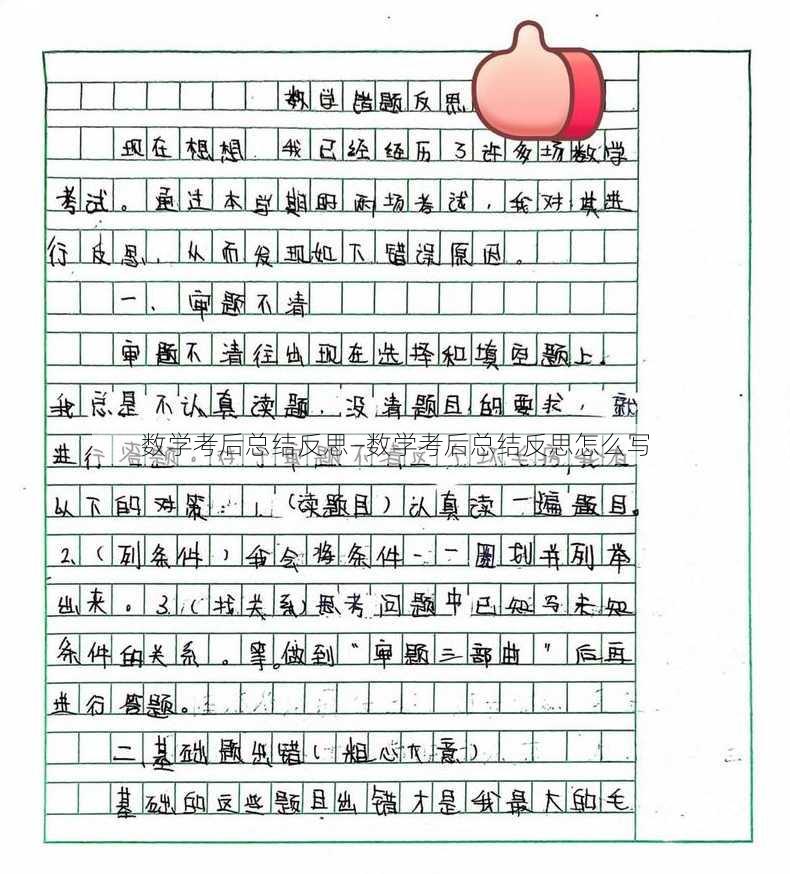 数学错题反思
现在想想，我已经经历了许多场数学
考试。通过本学期的两场考试，我对其进
行反思，从而发现如下错误原因。
一、审题不清
审题不清往出现在选择和填空题上。
我总是不认真读题，没清题目的要求，就
进行答题。
数学考后总结反思-数学考后总结反思怎么写
以下的对策：1.（读题目）认真读一遍题目。
2.（列条件）我会将条件一一圈划并列举
出来。3.（找关系）思考问题中已知与未知
条件的关系。等。做到“审题三部曲”后再
进行答题。
二、基础题出错（粗心大意）
基础的这些题目出错才是我最大的毛